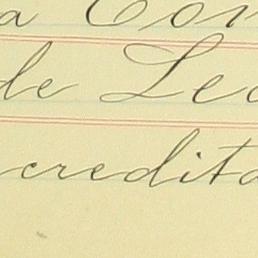 a Con
de Leo
credita